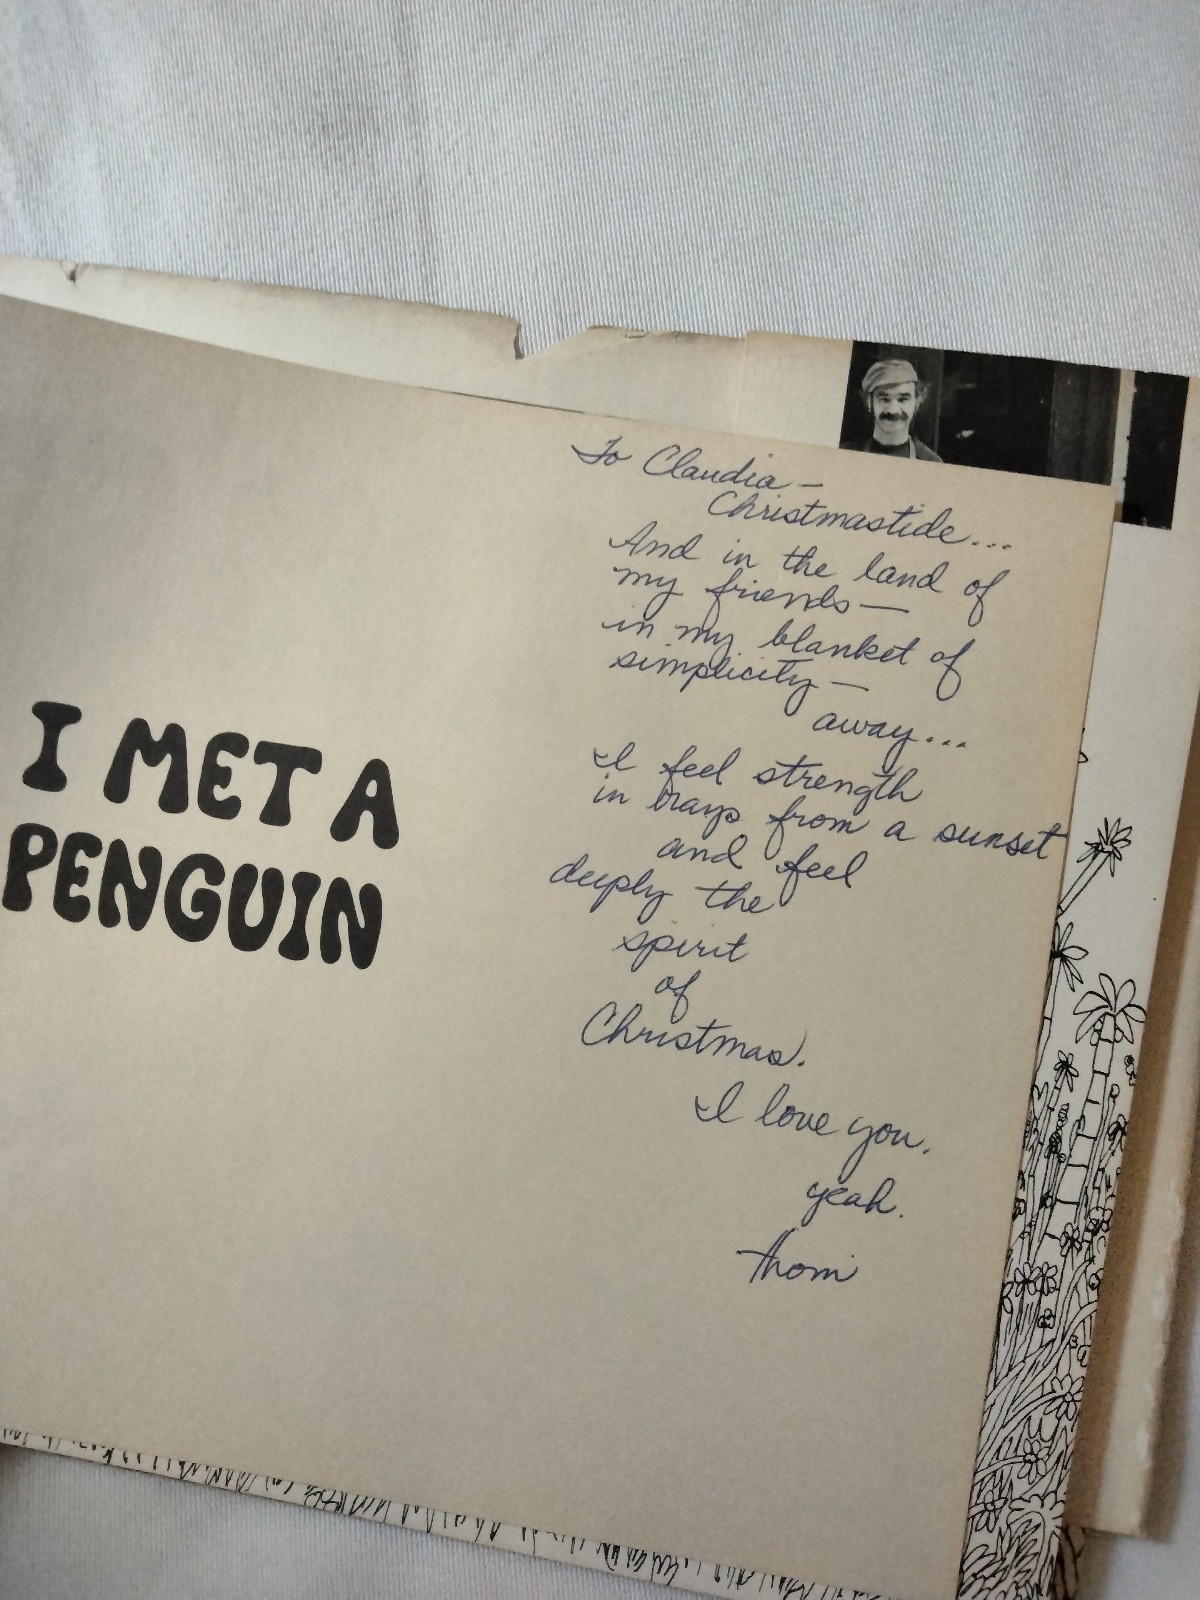 I MET A
PENGUIN
To Claudia —
Christmastide...
And in the land of
my friends —
in my blanket of
simplicity —
away...
I feel strength
in from a sunset
and feel
deeply the
spirit
of
Christmas.
I love you.
yeah.
thom